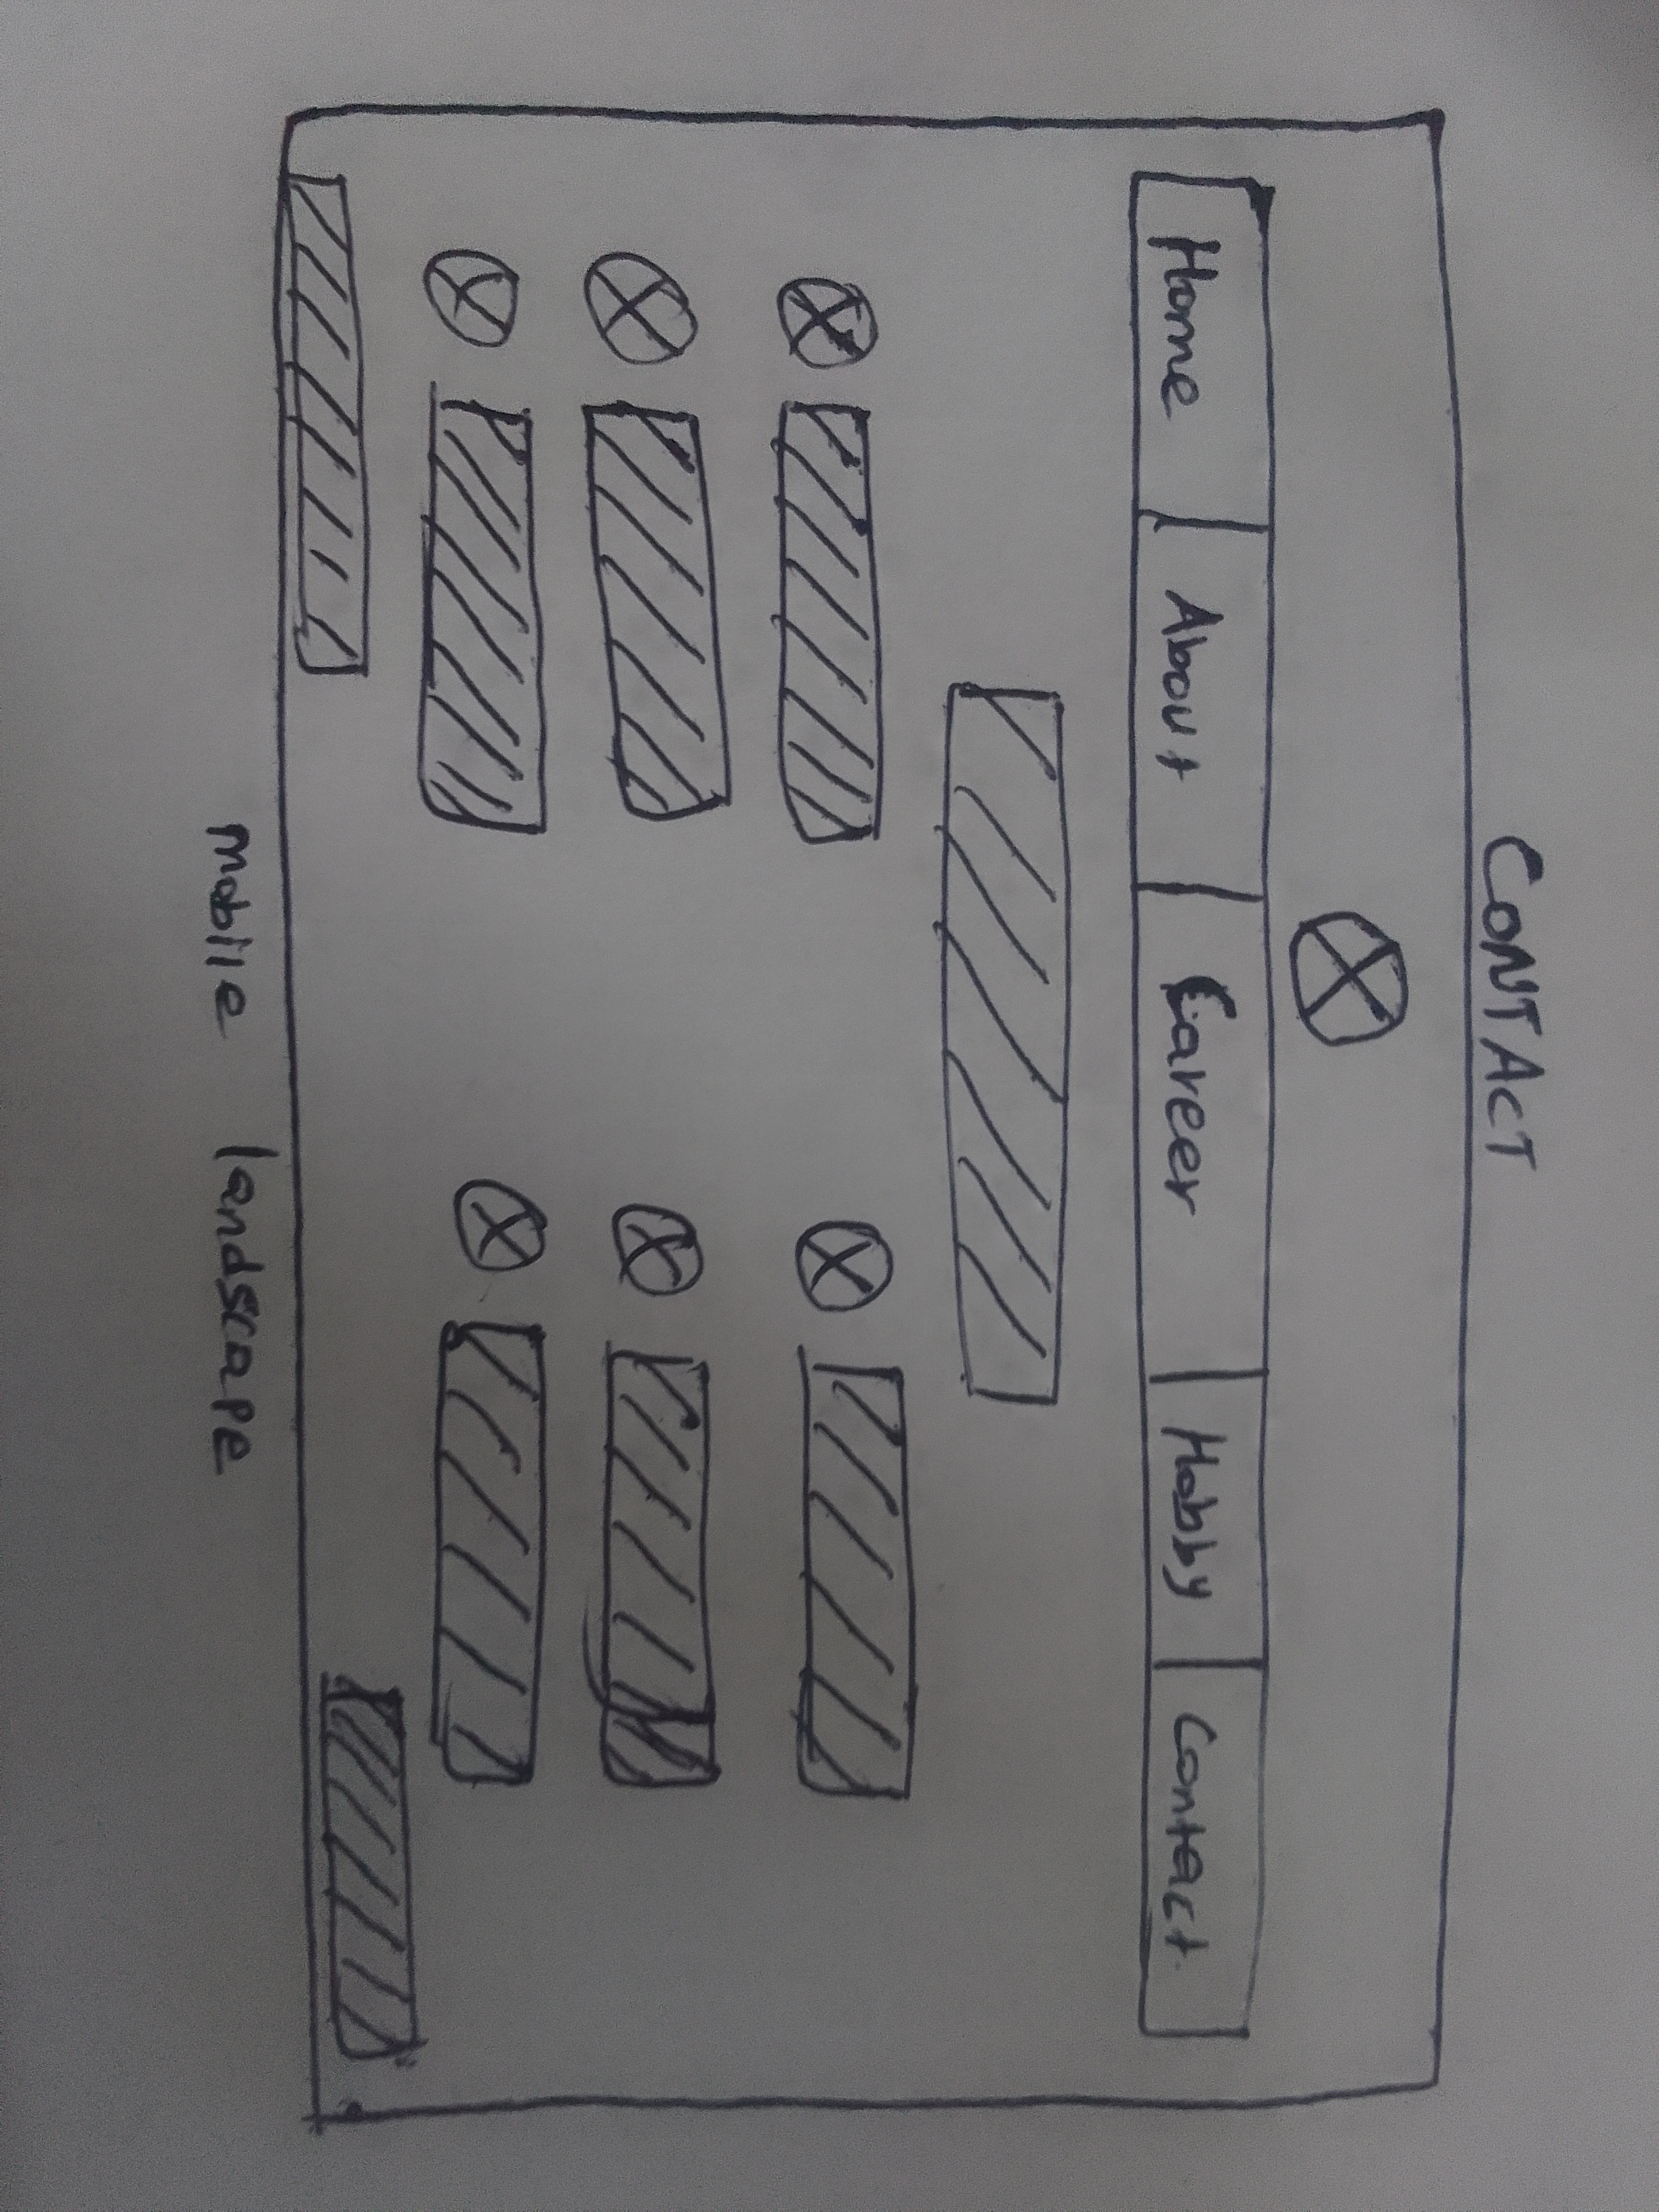 CONTACT
Home About Career Hobby Contact
mobile landscape